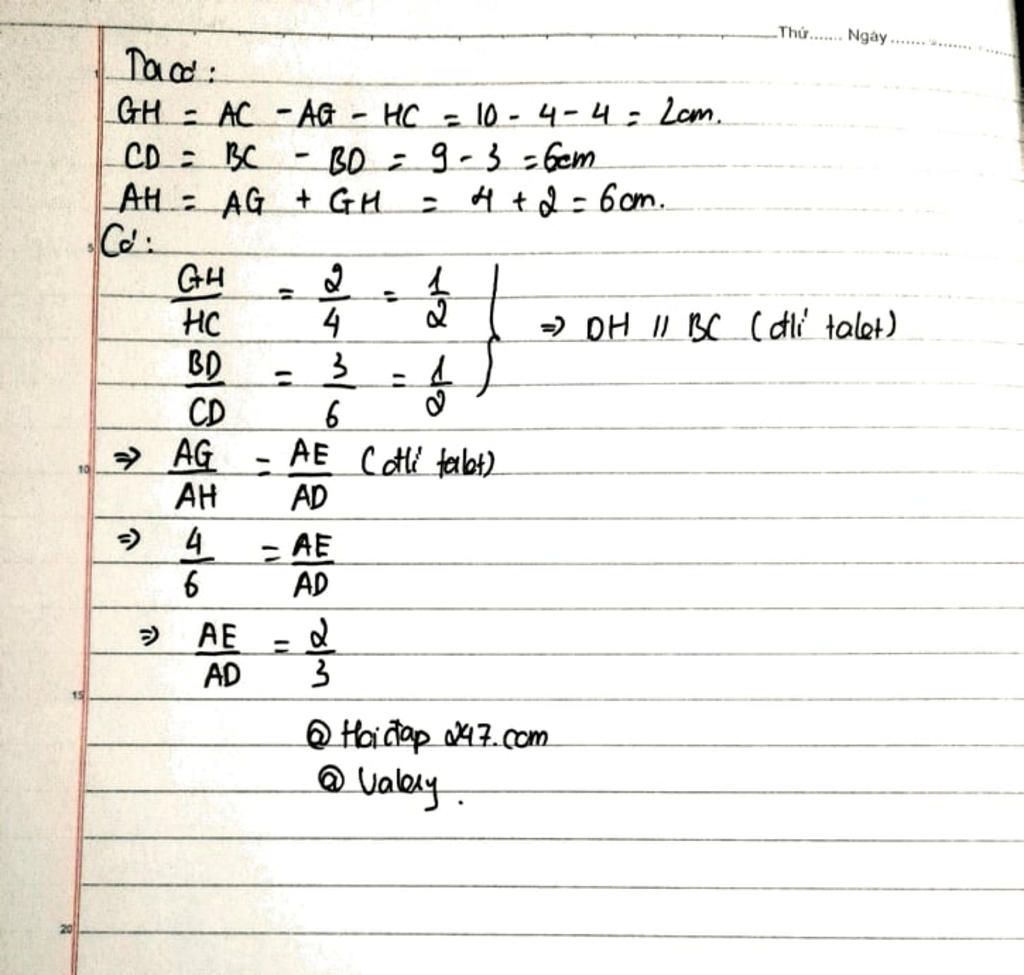 Thứ....... Ngày.................
Ta có:
GH = AC - AG - HC = 10 - 4 - 4 = 2cm.
CD = BC - BD = 9 - 3 = 6cm
AH = AG + GH = 4 + 2 = 6cm.
5
Có:
GH/HC = 2/4 = 1/2
BD/CD = 3/6 = 1/2
} => DH // BC (đlí talet)
10
=> AG/AH = AE/AD (đlí talet)
=> 4/6 = AE/AD
=> AE/AD = 2/3
15
@ Hoidap 247.com
@ Valery.
20